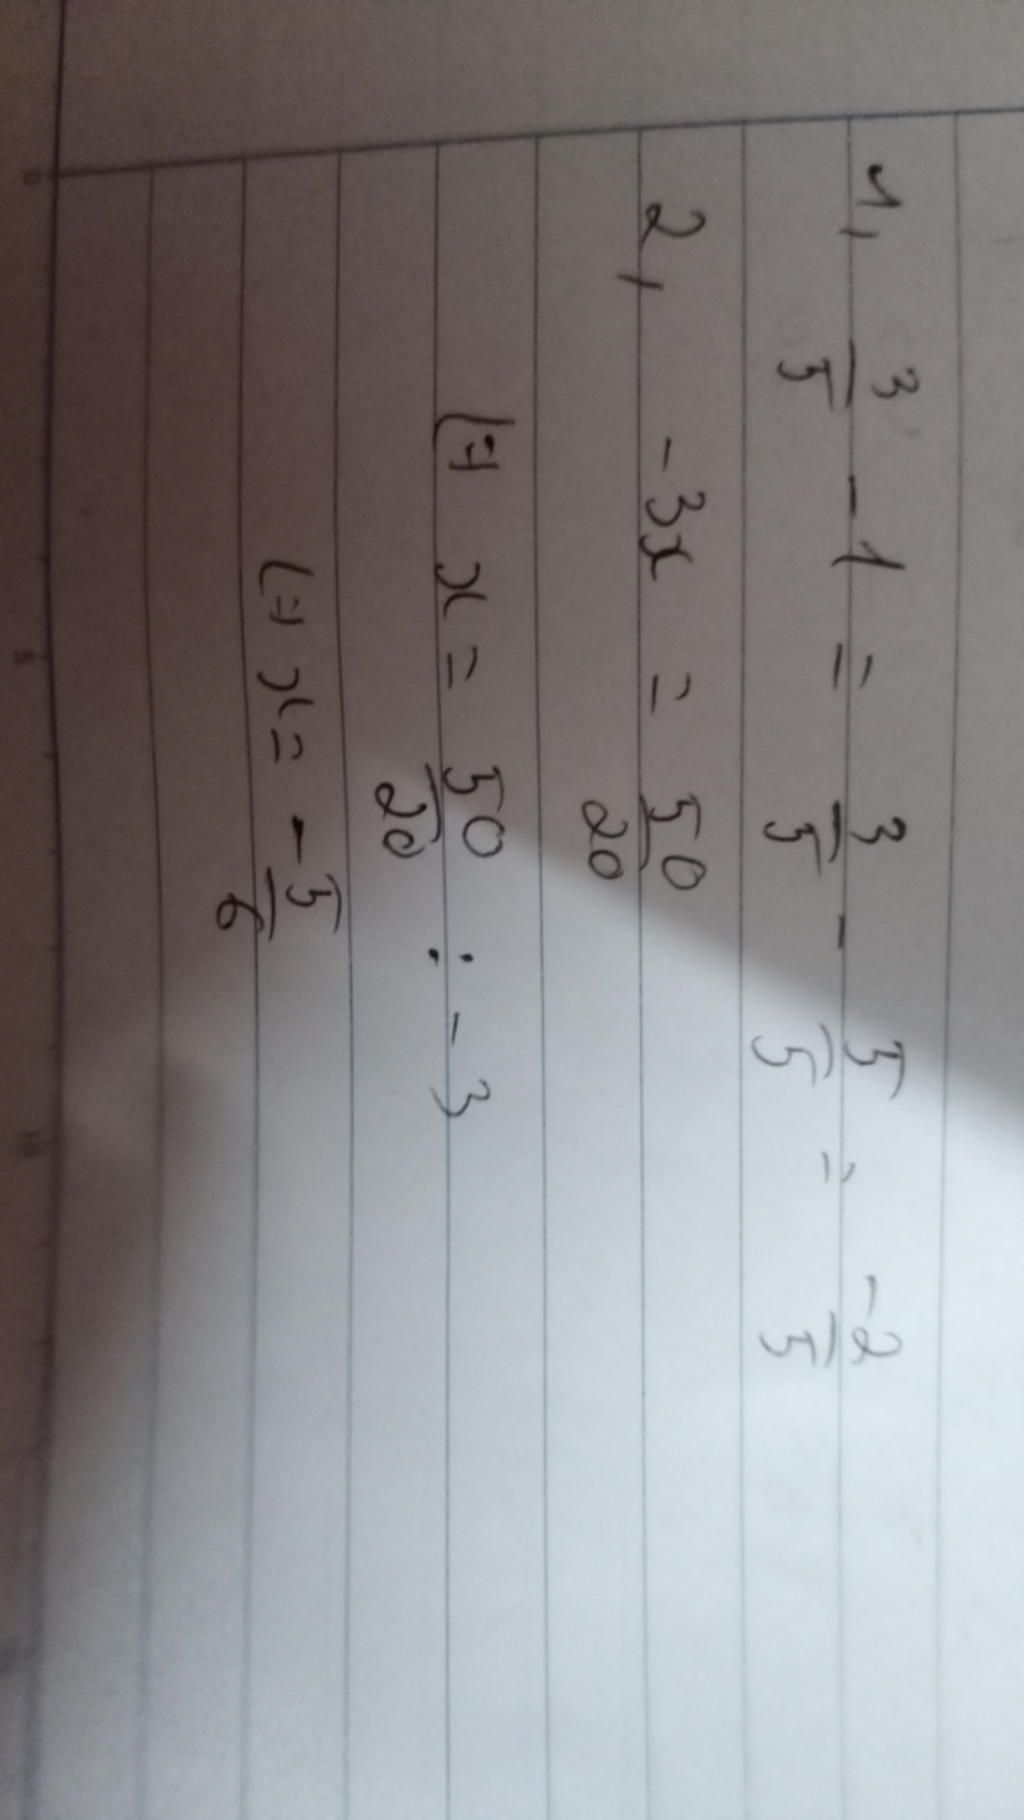 1, 3/5 - 1 = 3/5 - 5/5 = -2/5
2, -3x = 50/20
(=) x = 50/20 : -3
(=) x = - 5/6
0 5 10